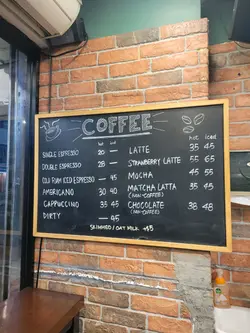 COFFEE
Hot Iced
SINGLE ESPRESSO 20 —
DOUBLE ESPRESSO 28 —
ESPRESSO — 45
AMERICANO 30 40
CAPPUCCINO 35 45
DIRTY — 45
Hot Iced
LATTE 35 45
STRAWBERRY LATTE 55 65
MOCHA 45 55
MATCHA LATTA 35 45
(NON-COFFEE)
CHOCOLATE 38 48
(NON-COFFEE)
SKIMMED / OAT MILK +15